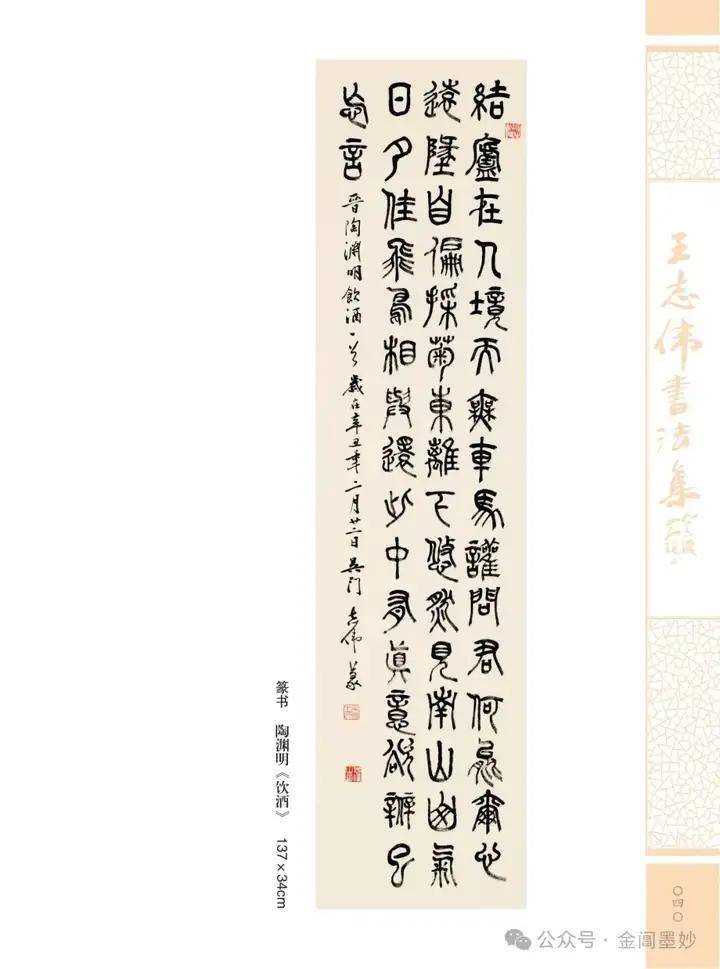 結廬在人境而無車馬讙問君何能爾心
遠墬自偏採菊東離下悠然見南山山氣
日夕佳飛鳥相與還此中有眞意欲辧已
忘言 晉陶淵明飲酒一首 歲在辛丑年二月廿二日 吳門 志偉篆
篆书 陶渊明《饮酒》 137×34cm
王志伟書法集
〇四〇
公众号·金阊墨妙